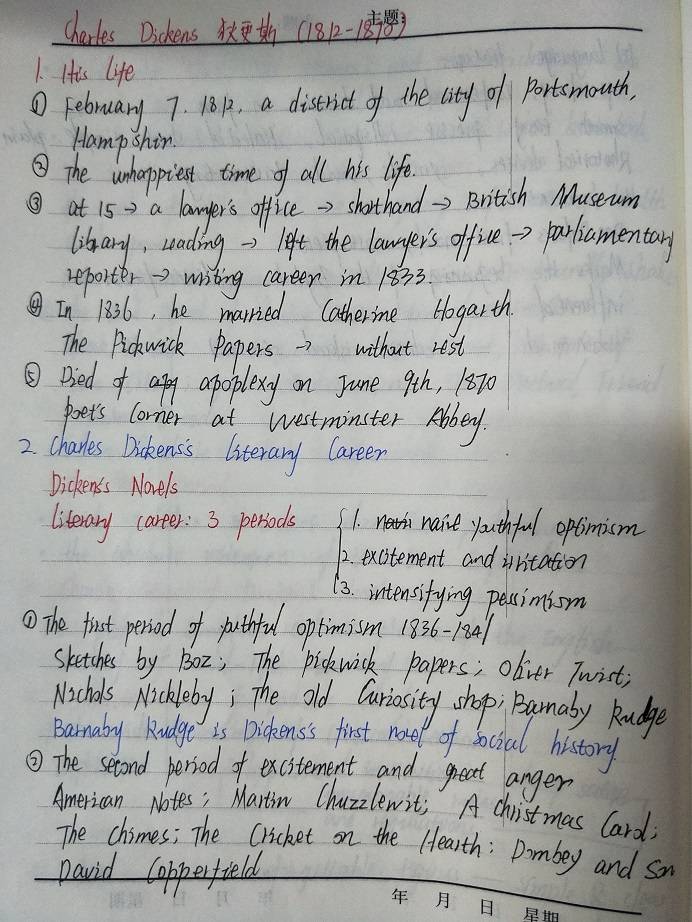 主题:
Charles Dickens 狄更斯 (1812-1870)
1. His Life
① February 7. 1812, a district of the city of Portsmouth,
Hampshir.
② The unhappiest time of all his life.
③ at 15 → a lawyer's office → shorthand → British Museum
library, reading → left the lawyer's office → parliamentary
reporter → writing career in 1833.
④ In 1836, he married Catherine Hogarth.
The Pickwick Papers → without rest
⑤ Died of apoplexy on June 9th, 1870
Poet's Corner at Westminster Abbey.
2. Charles Dickens's Literary Career
Dickens's Novels
literary career: 3 periods { 1. naive youthful optimism
2. excitement and irritation
3. intensifying pessimism
① The first period of youthful optimism 1836-1841
Sketches by Boz; The Pickwick Papers; Oliver Twist;
Nichols Nickleby; The Old Curiosity Shop; Barnaby Rudge
Barnaby Rudge is Dickens's first novel of social history.
② The second period of excitement and great anger
American Notes; Martin Chuzzlewit; A Christmas Carol;
The Chimes; The Cricket on the Hearth; Dombey and Son
David Copperfield
年 月 日 星期